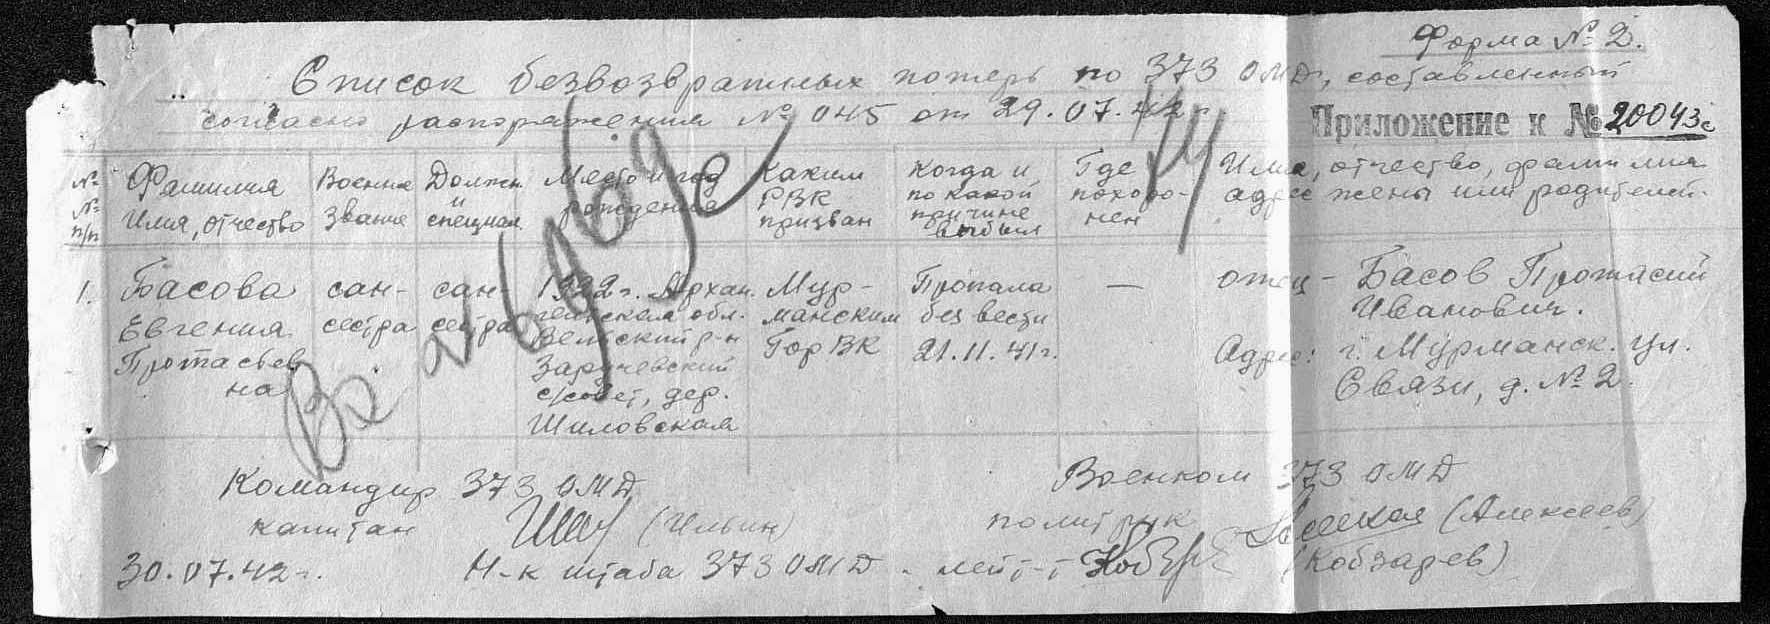 Форма № 2.
Список безвозвратных потерь по 373 ОМД, составленный
согласно распоряжения № 045 от 29.07.42 г.
Приложение к № 20043с
№ № п/п
Фамилия Имя, отчество
Военное звание
Должн. и специал.
Место и год рождения
Каким РВК призван
Когда и по какой причине выбыл
Где похоро-нен
Имя, отчество, фамилия адрес жены или родителей.
1.
Басова
Евгения
Протасьев
на
сан-
сестра
сан-
сестра
1922 г. Архан.
гельская обл.
Вельский р-н
Заручевский
с/совет, дер.
Шиловская
Мур-
манским
Гор ВК
Пропала
без вести
21.11.41 г.
—
отец - Басов Протасий
Иванович.
Адрес: г. Мурманск. ул.
Связи, д. № 2.
Командир 373 ОМД
капитан (Ильин)
Военком 373 ОМД
политрук (Алексеев)
30.07.42 г. Н-к штаба 373 ОМД - лейт-т (Кобзарев)